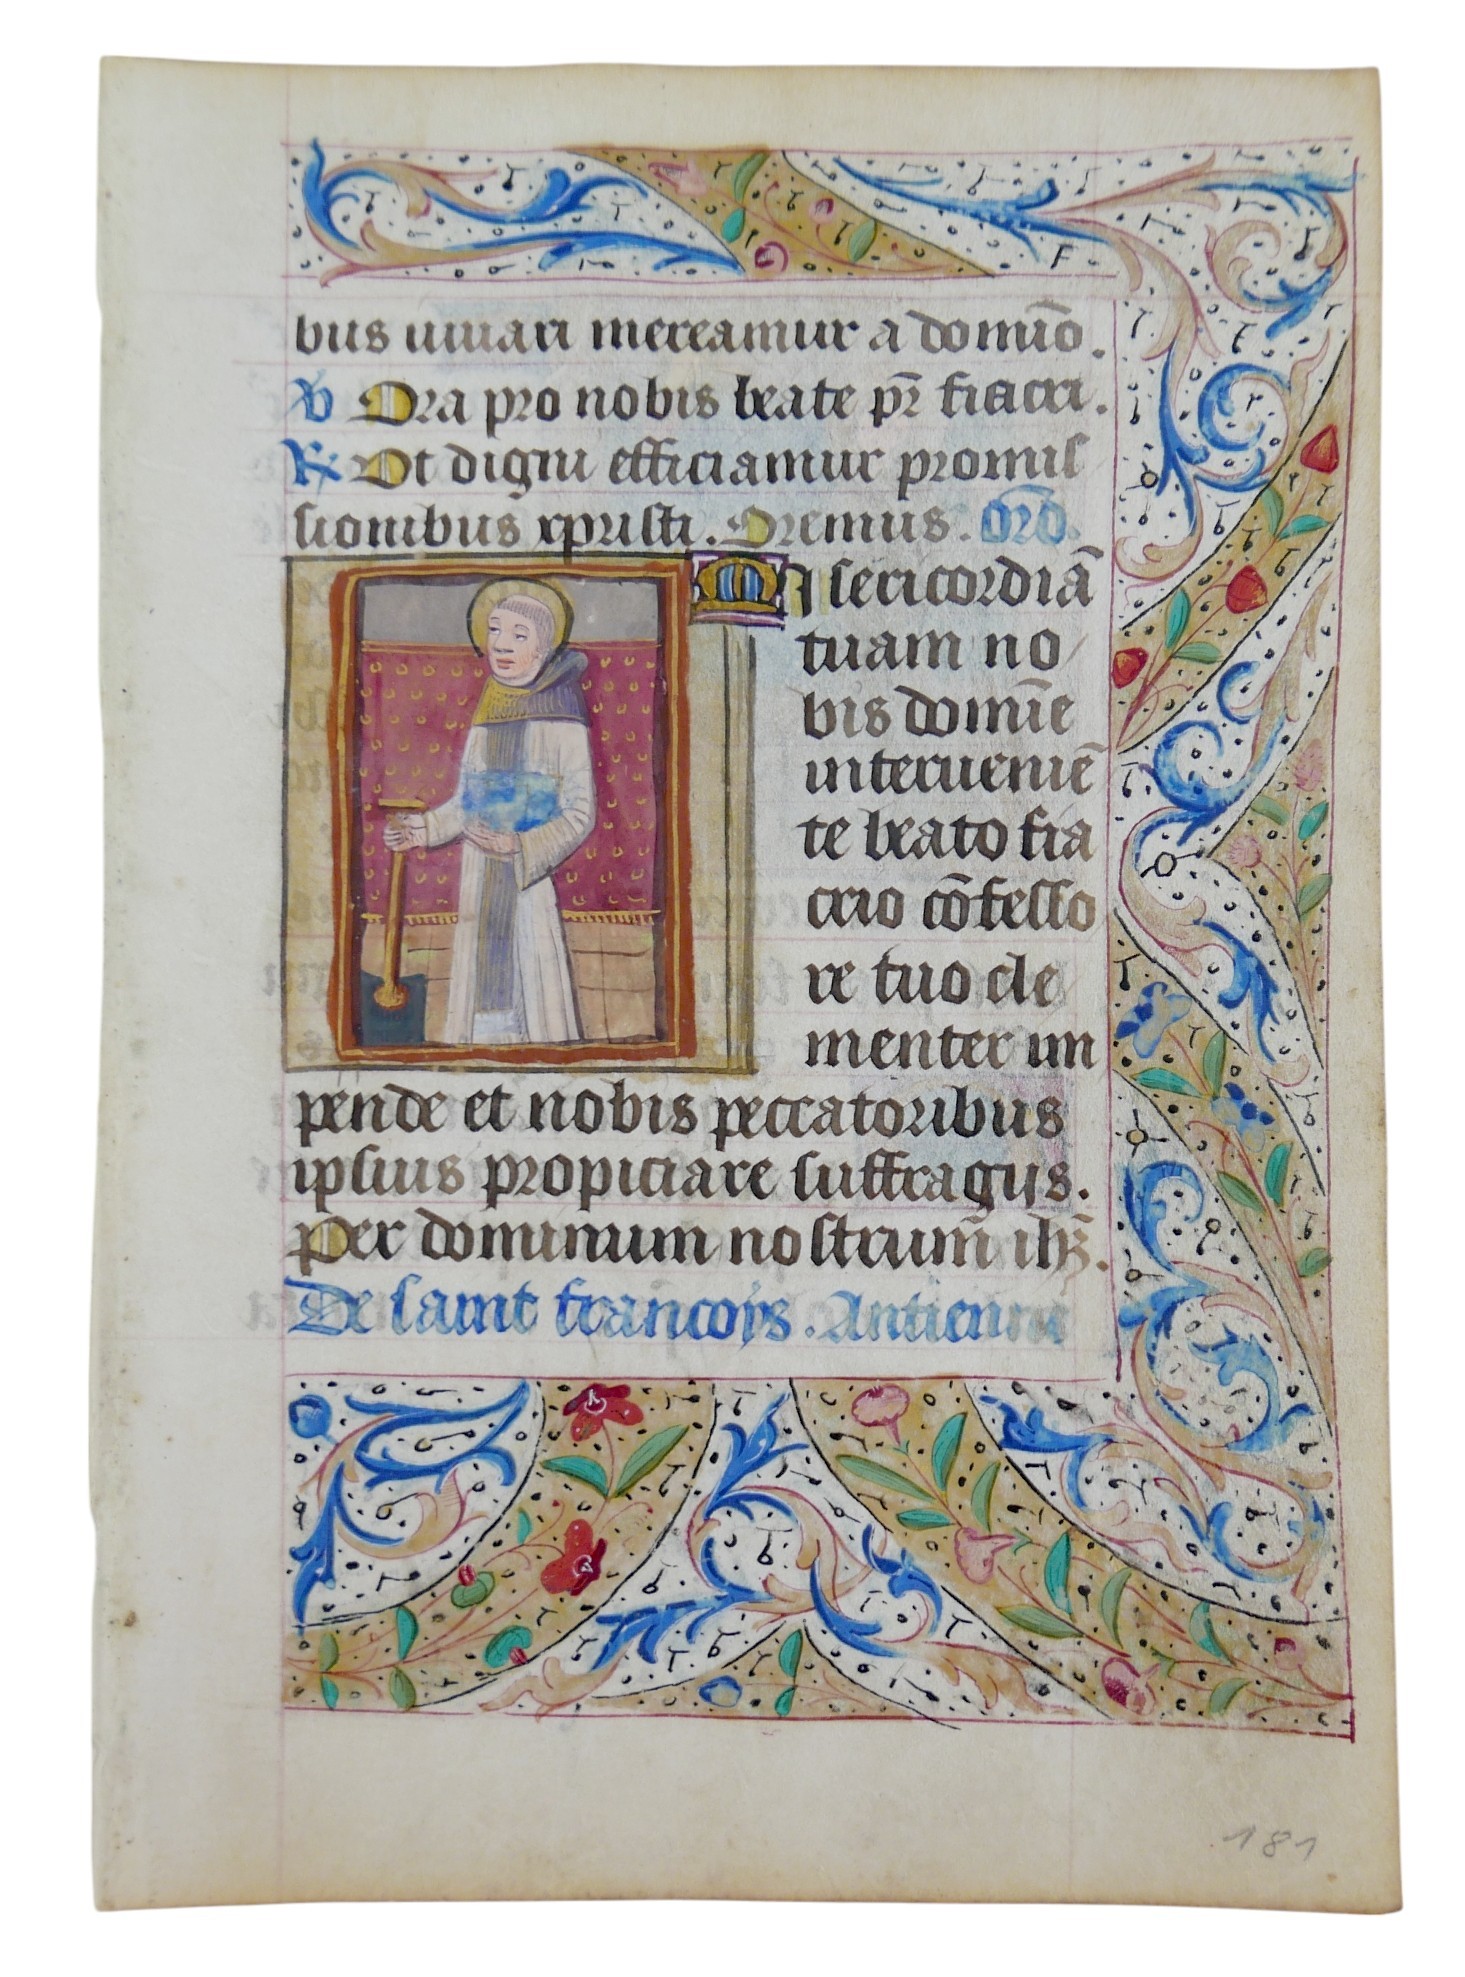 bus iuuari mereamur a domīo.
℣ Ora pro nobis beate pr̄ fiacri.
℟ Ut digni efficiamur promis
sionibus xpristi. Oremus. Orō.
Misericordiā
tuam no
bis domīe
interueniē
te beato fia
crio cōfesso
re tuo cle
menter im
pende et nobis peccatoribus
ipsius propiciare suffragijs.
Per dominum nostrum̄ ihs̄.
De saint francoys. Antienne
181